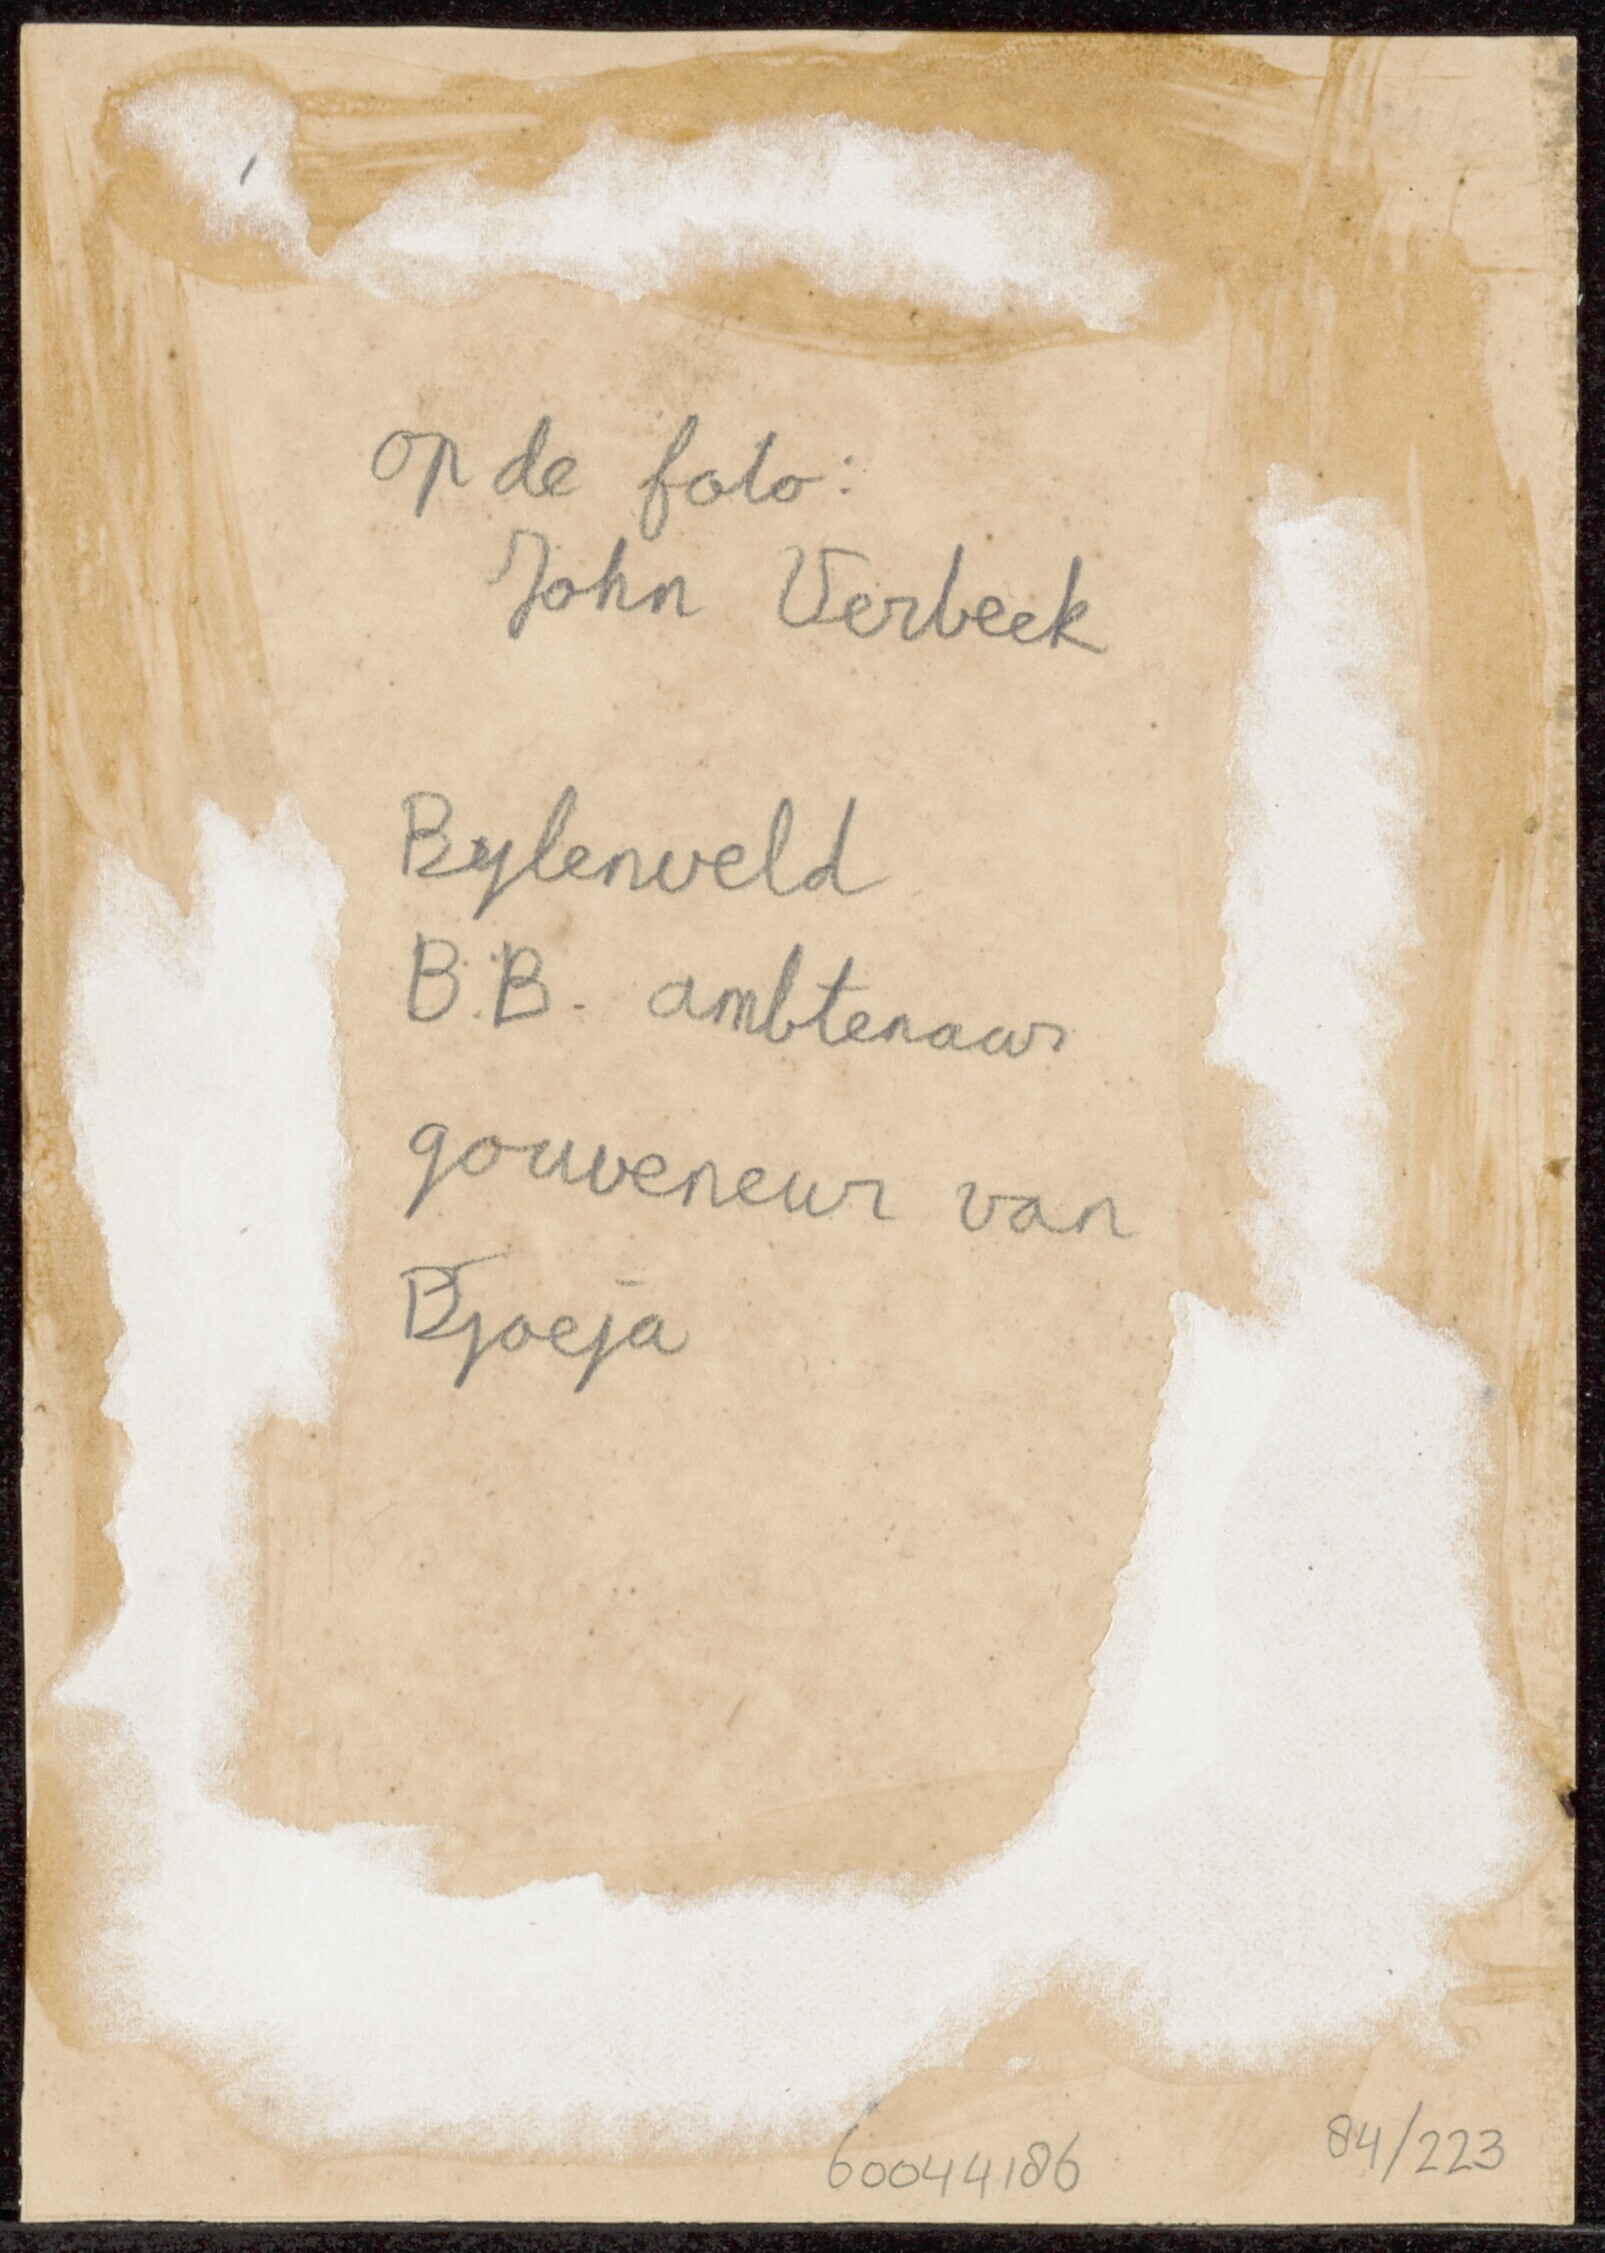 op de foto:
John Verbeek
Bylenveld
B.B. ambtenaar
gouveneur van
Bjoeja
60044186
84/223